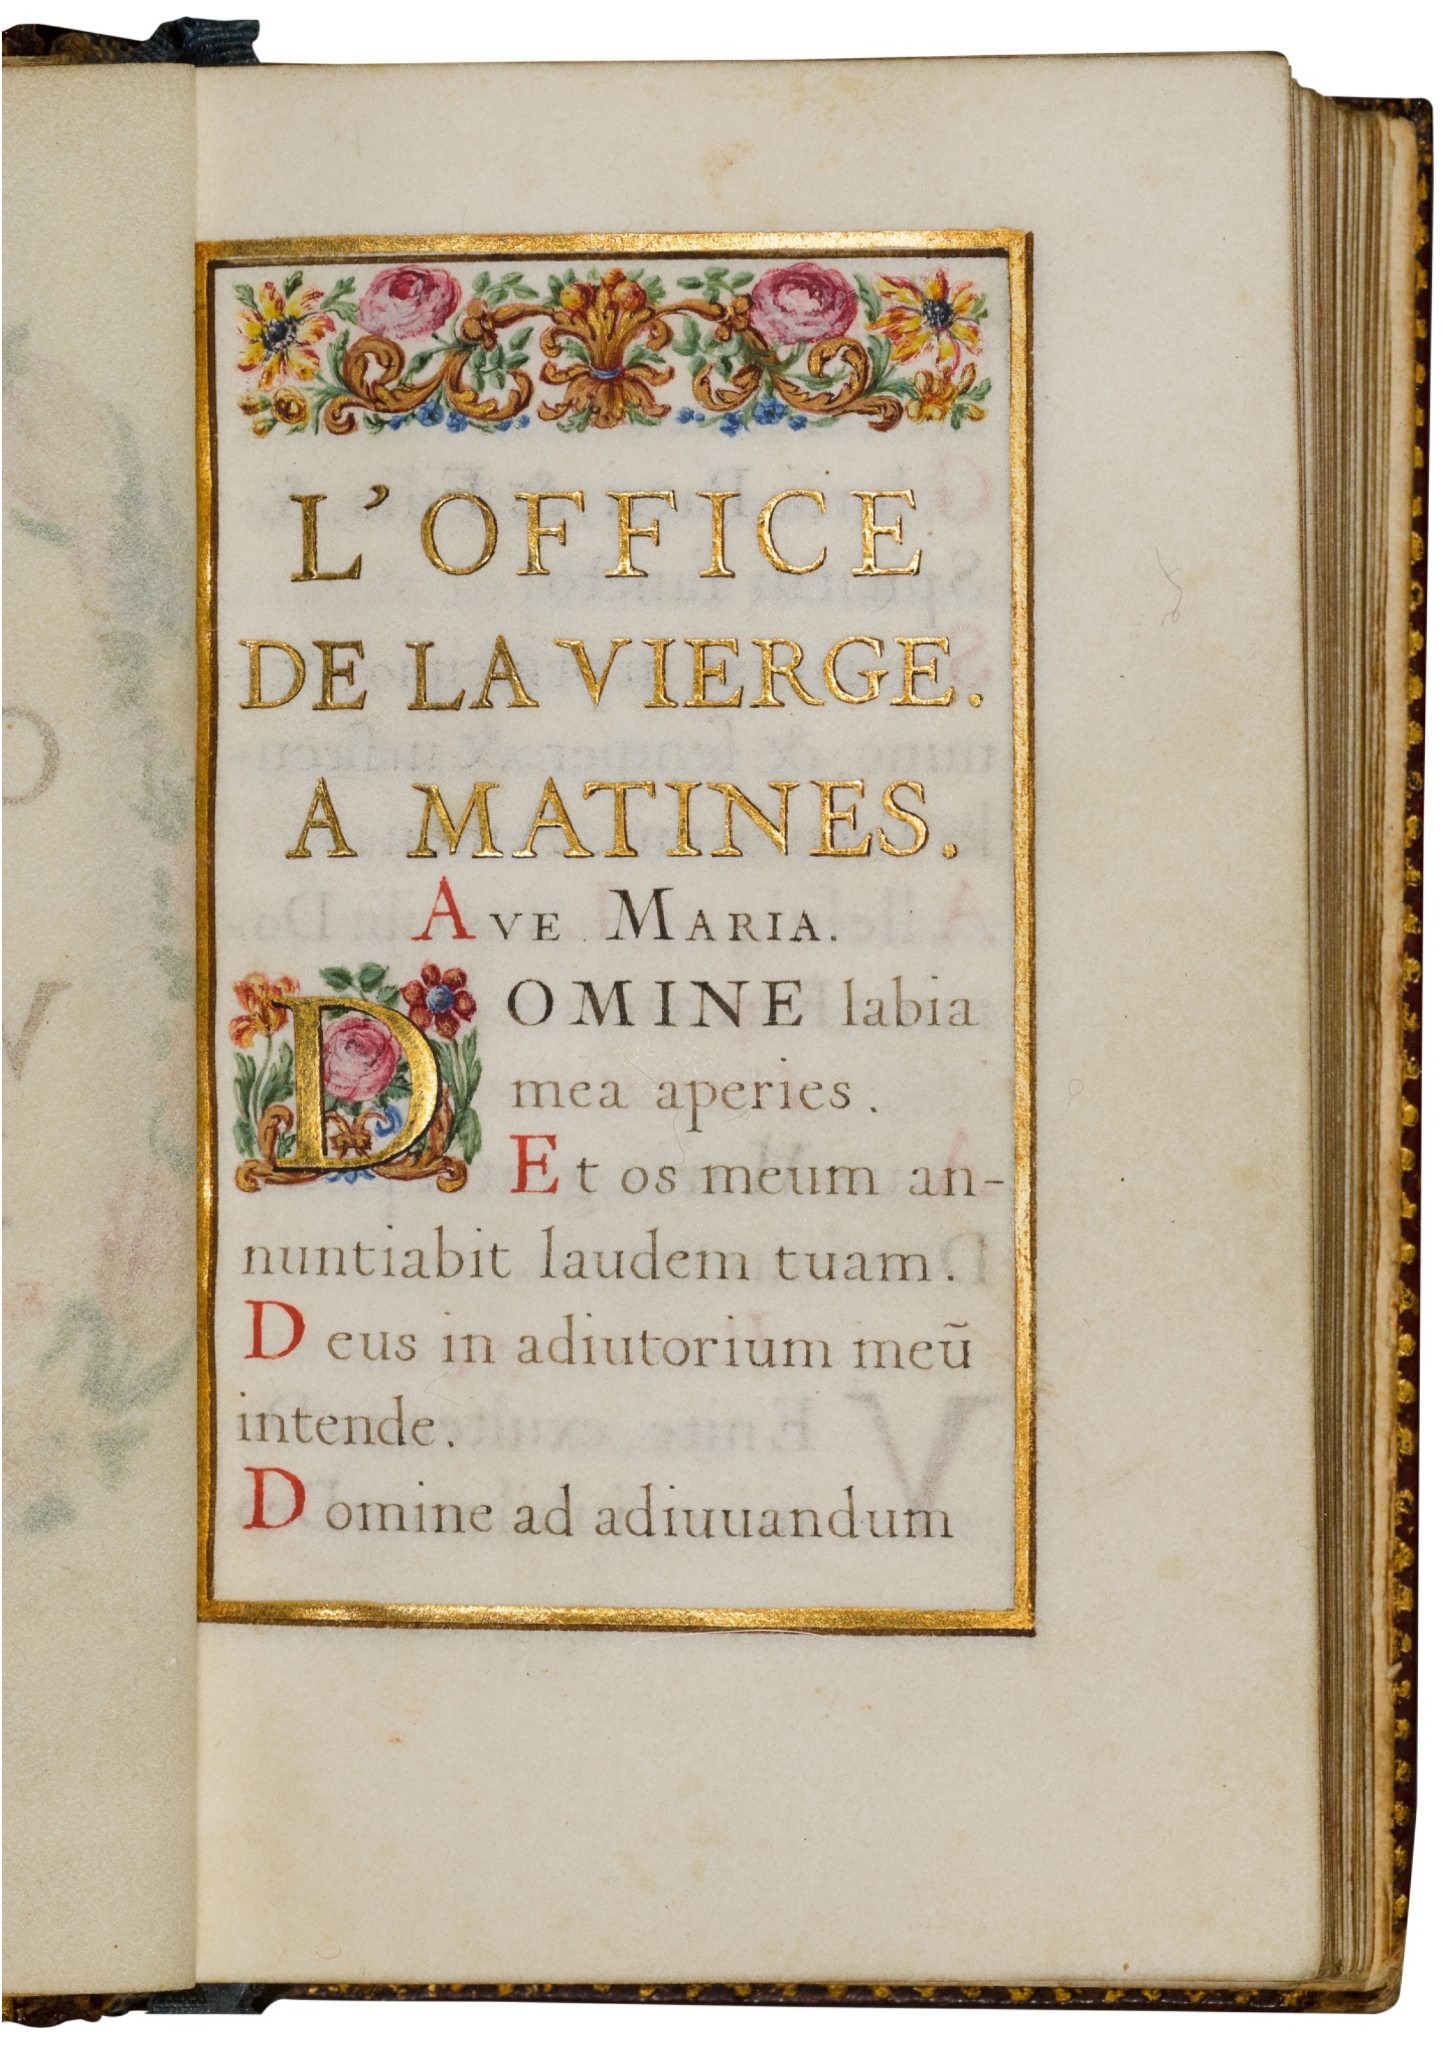 L'OFFICE
DE LA VIERGE.
A MATINES.
AVE MARIA.
DOMINE labia
mea aperies.
Et os meum an-
nuntiabit laudem tuam.
Deus in adiutorium meū
intende.
Domine ad adiuuandum